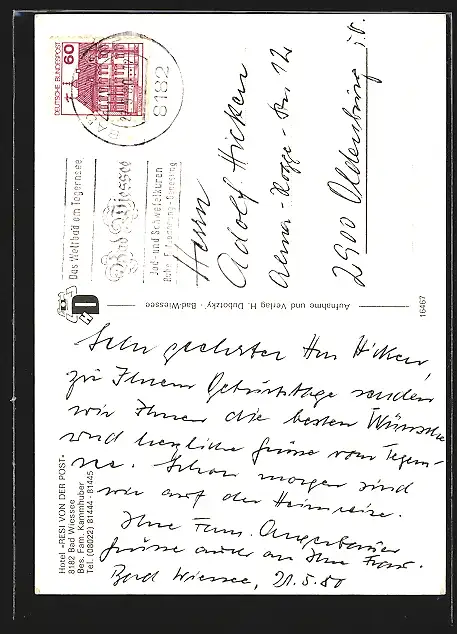 DEUTSCHE BUNDESPOST
60
8182
Das Weltbad am Tegernsee
Bad Wiessee
Jod- und Schwefelkuren
Herrn
Adolf Hicken
Alma-Rogge-Str. 12
2900 Oldenburg i.O.
Aufnahme und Verlag H. Dubotzky · Bad-Wiessee
16467
Sehr geehrter Herr Hicken,
zu Ihrem Geburtstage senden
wir Ihnen die besten Wünsche
und herzliche Grüsse vom Tegern-
see. Schon morgen sind
wir auf der Heimreise.
Ihre Fam. Angerbauer
Grüsse auch an Ihre Frau.
Bad Wiessee, 21.5.80
Hotel »RESI VON DER POST«
8182 Bad Wiessee
Bes. Fam. Kammhuber
Tel. (08022) 81444 - 81445